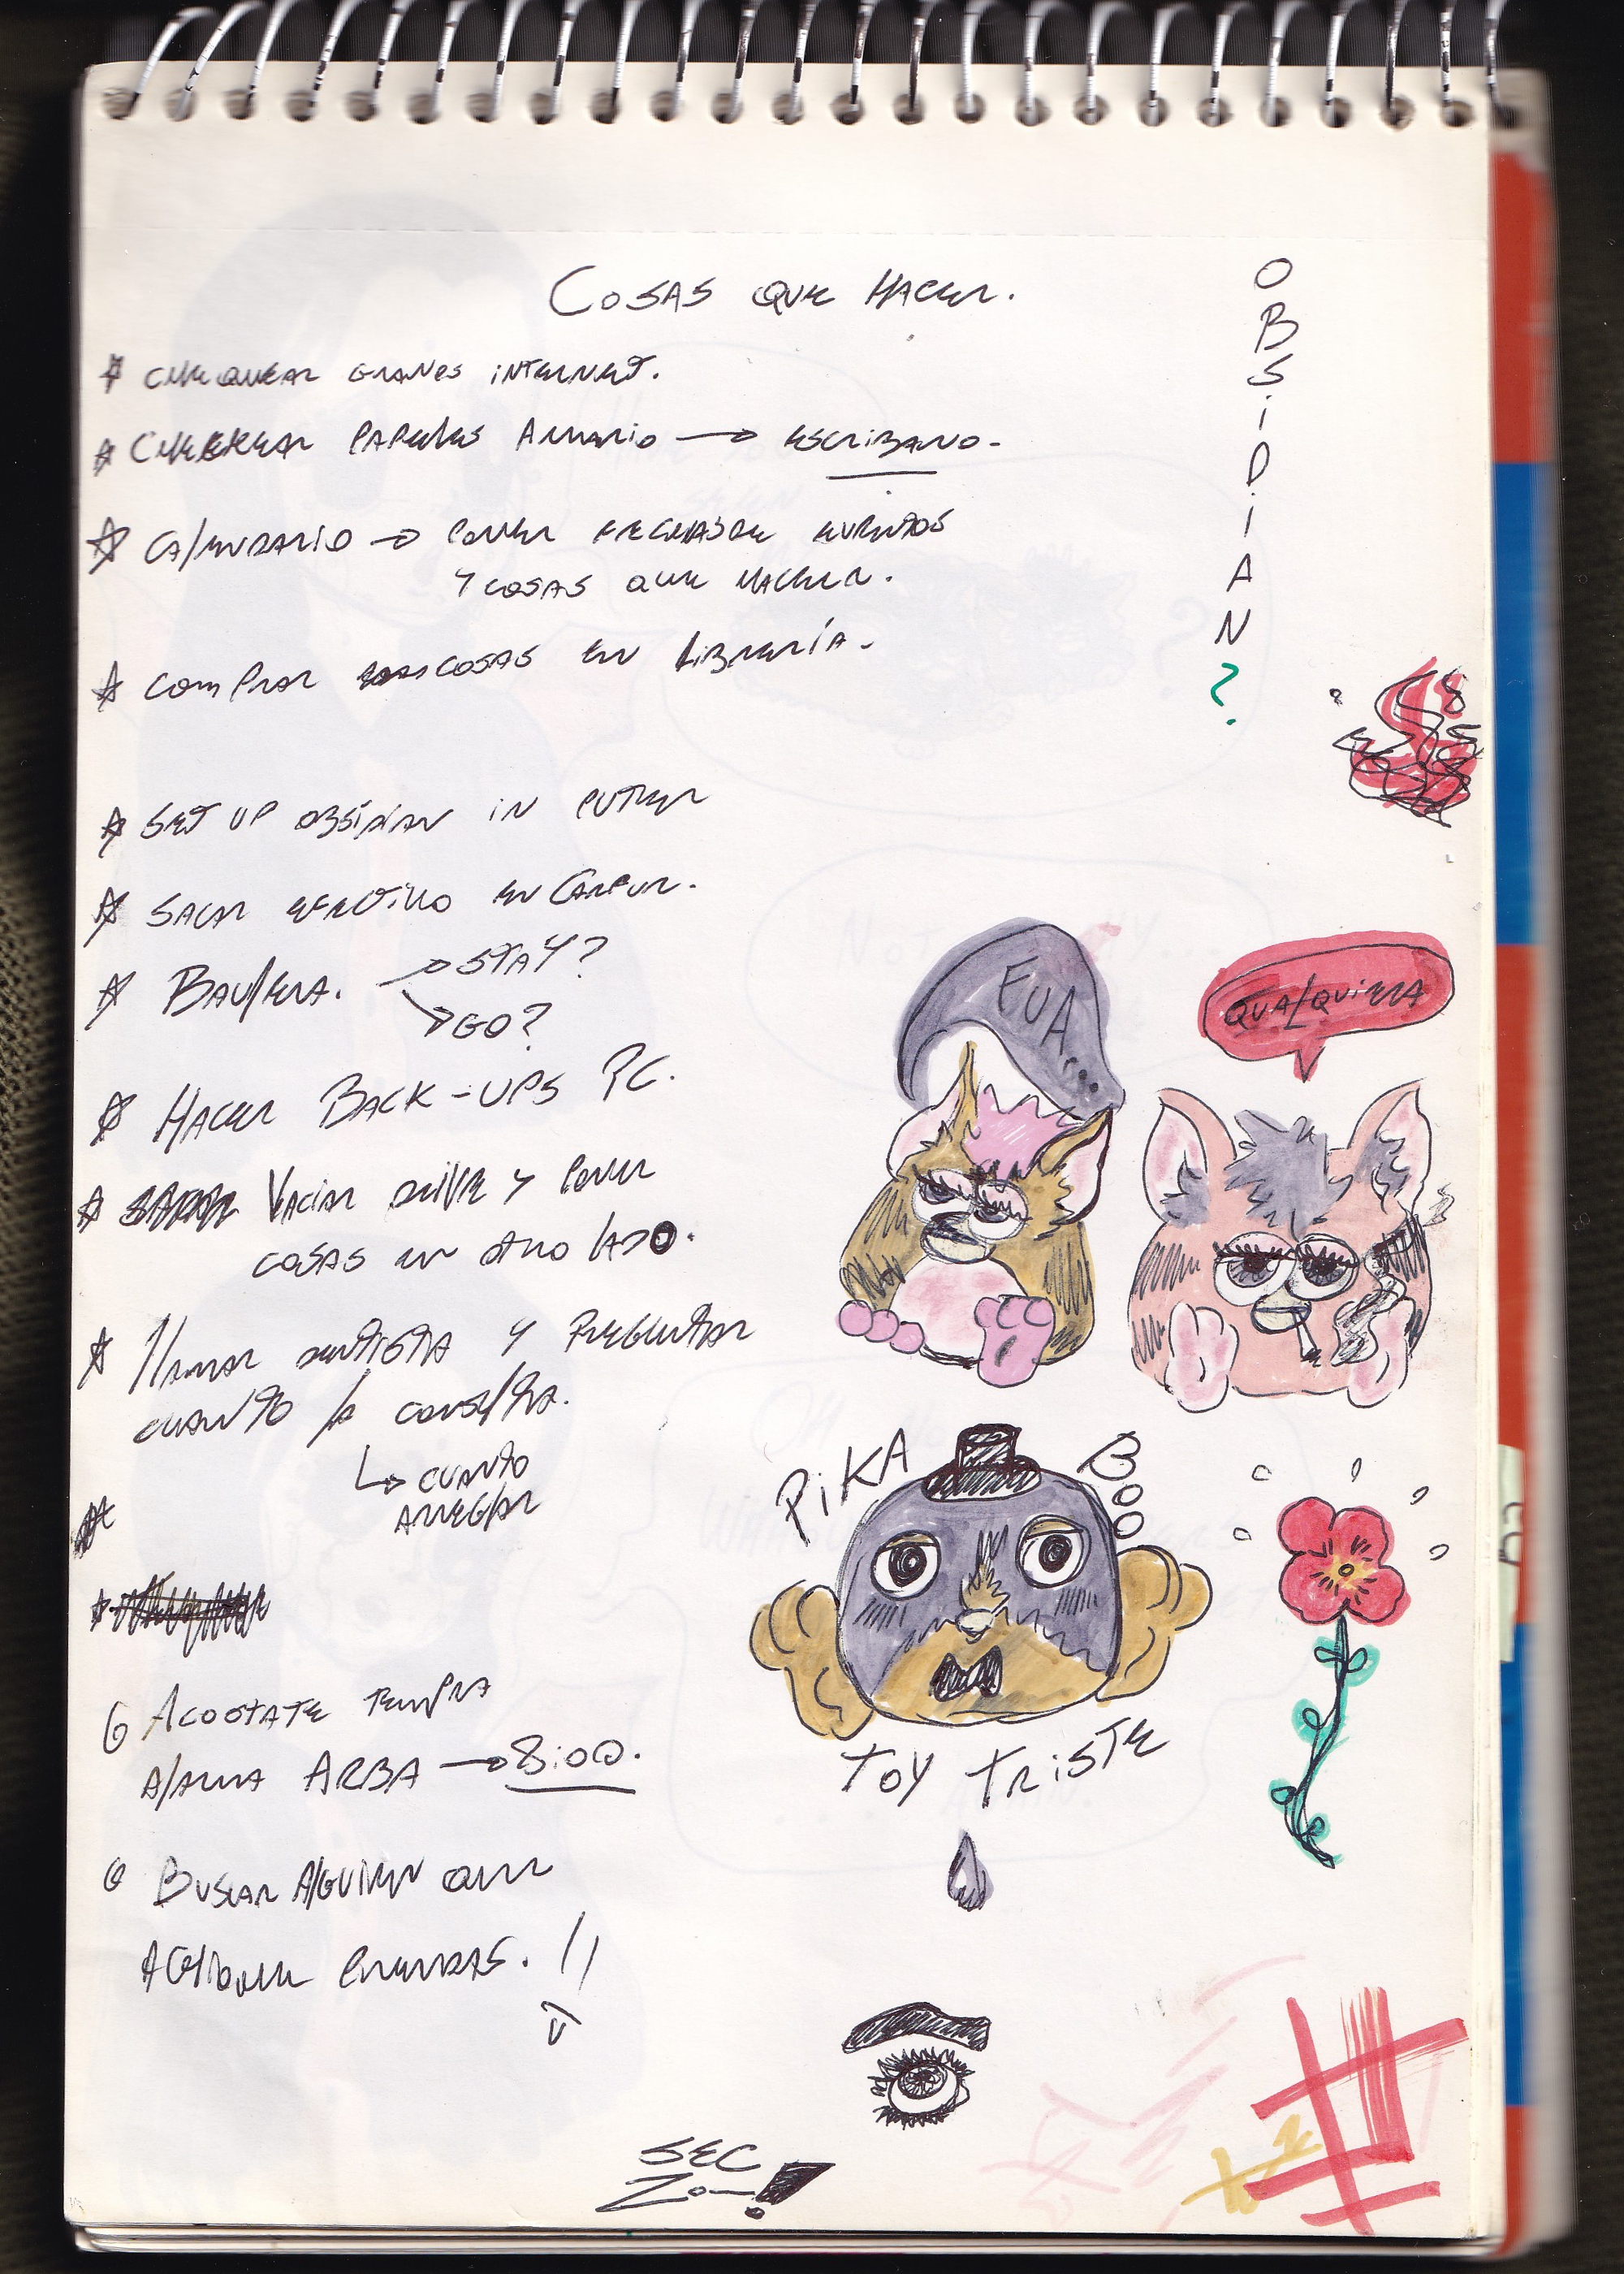 COSAS QUE HACER.
CHEQUEAR GRANES INTERNET.
CHEKEAR PAPELES ARMARIO → ESCRIBANO.
CALENDARIO → PONER FECHAS DE EVENTOS
Y COSAS QUE HACER.
COMPRAR COSAS EN LIBRERÍA.
SET UP OBSIDIAN IN PUTER
SACAR EFECTIVO EN CARFUR.
BAULERA. → STAY?
→ GO?
HACER BACK-UPS PC.
VACIAR DRIVE Y PONER
COSAS EN OTRO LADO.
LLAMAR DENTISTA Y PREGUNTAR
CUANTO LA CONSULTA.
↳ CUANTO
ARREGLAR
ACOSTATE TEMPRA
ALARMA ARBA → 8:00.
BUSCAR ALGUIEN QUE
AGILIQUE PRENDAS. !!
OBSIDIAN?
EUA...
QUALQUIERA
PIKA BOO
TOY TRISTE
SEC
ZO-!